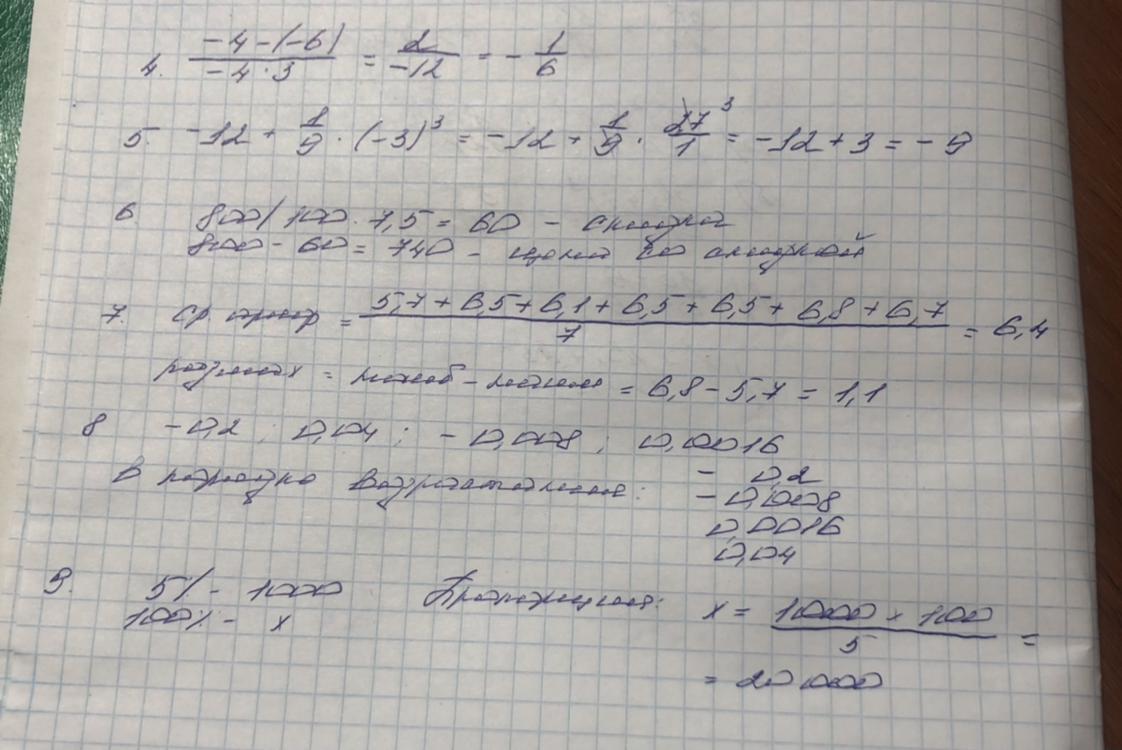 4. (-4-(-6))/(-4·3) = 2/(-12) = -1/6
5. -12 + 1/9 · (-3)³ = -12 + 1/9 · 27/1 ³ = -12+3 = -9
6. 800/100 · 7,5 = 60 - скидка
800 - 60 = 740 - цена со скидкой
7. Ср ариф = (5,7+6,5+6,1+6,5+6,5+6,8+6,7)/7 = 6,4
размах = наиб - наим = 6,8 - 5,7 = 1,1
8 -0,2 ; 0,04 ; -0,008 ; 0,0016
В порядке возрастания: - 0,2
- 0,008
0,0016
0,04
9. 5% - 1000 Пропорция: x = (1000 × 100)/5 =
100% - x
= 20 000